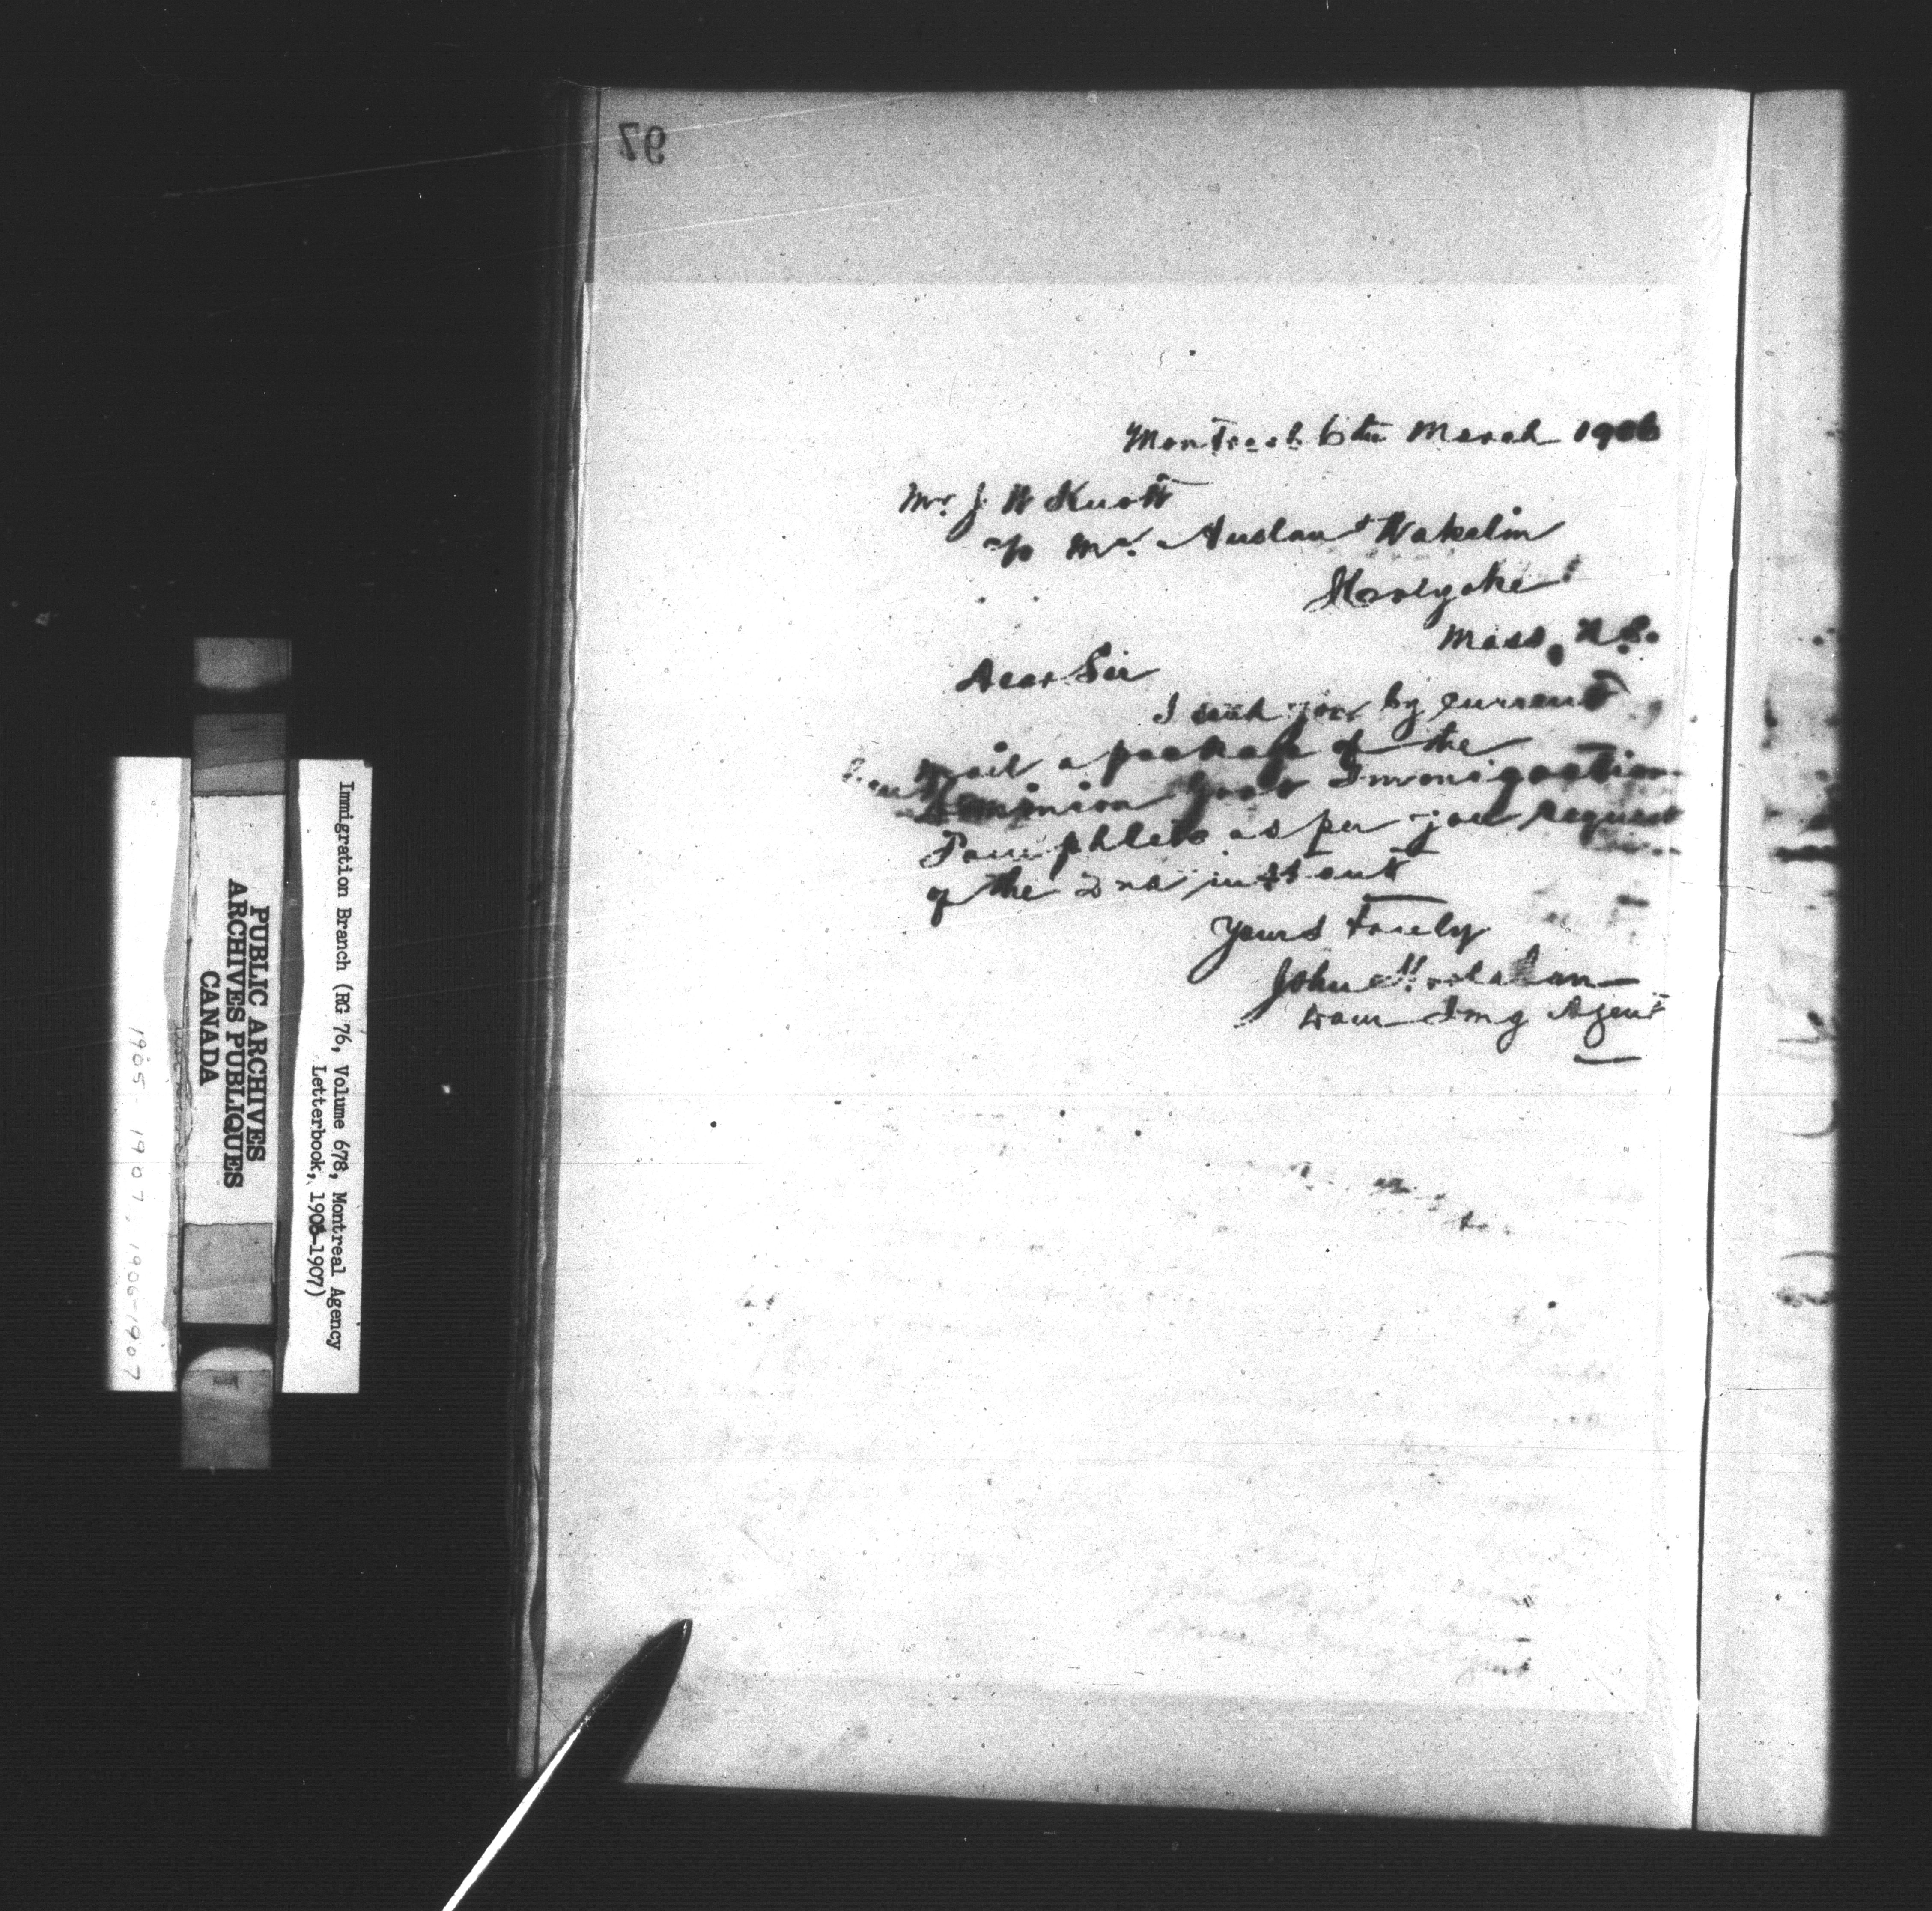 97
Montreal 6th March 1906
Mr. J W Knott
c/o Mr. Auslan & Wakelin
Holyoke
Mass, U.S.
Dear Sir
I send you by current
mail a package of the
Dominion Govt Immigration
Pamphlets as per your request
of the 2nd instant
Yours Truly
John Hoolahan
Dom Img Agent
Immigration Branch (RG 76, Volume 678, Montreal Agency
Letterbook, 1905-1907)
PUBLIC ARCHIVES
ARCHIVES PUBLIQUES
CANADA
1905-1907, 1906-1907